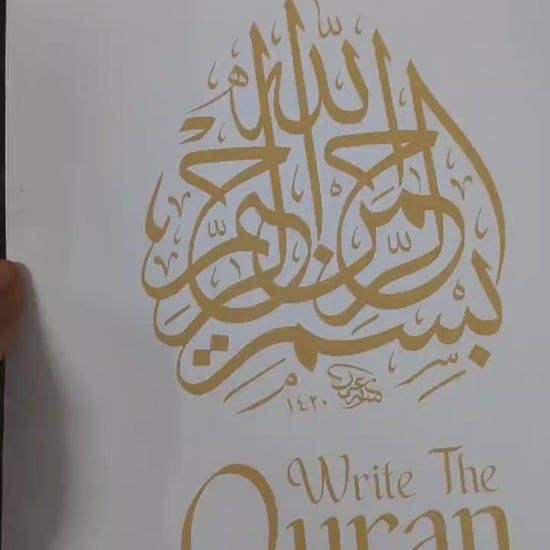 بسم الله الرحمن الرحيم
١٤٢٠
Write The
Quran